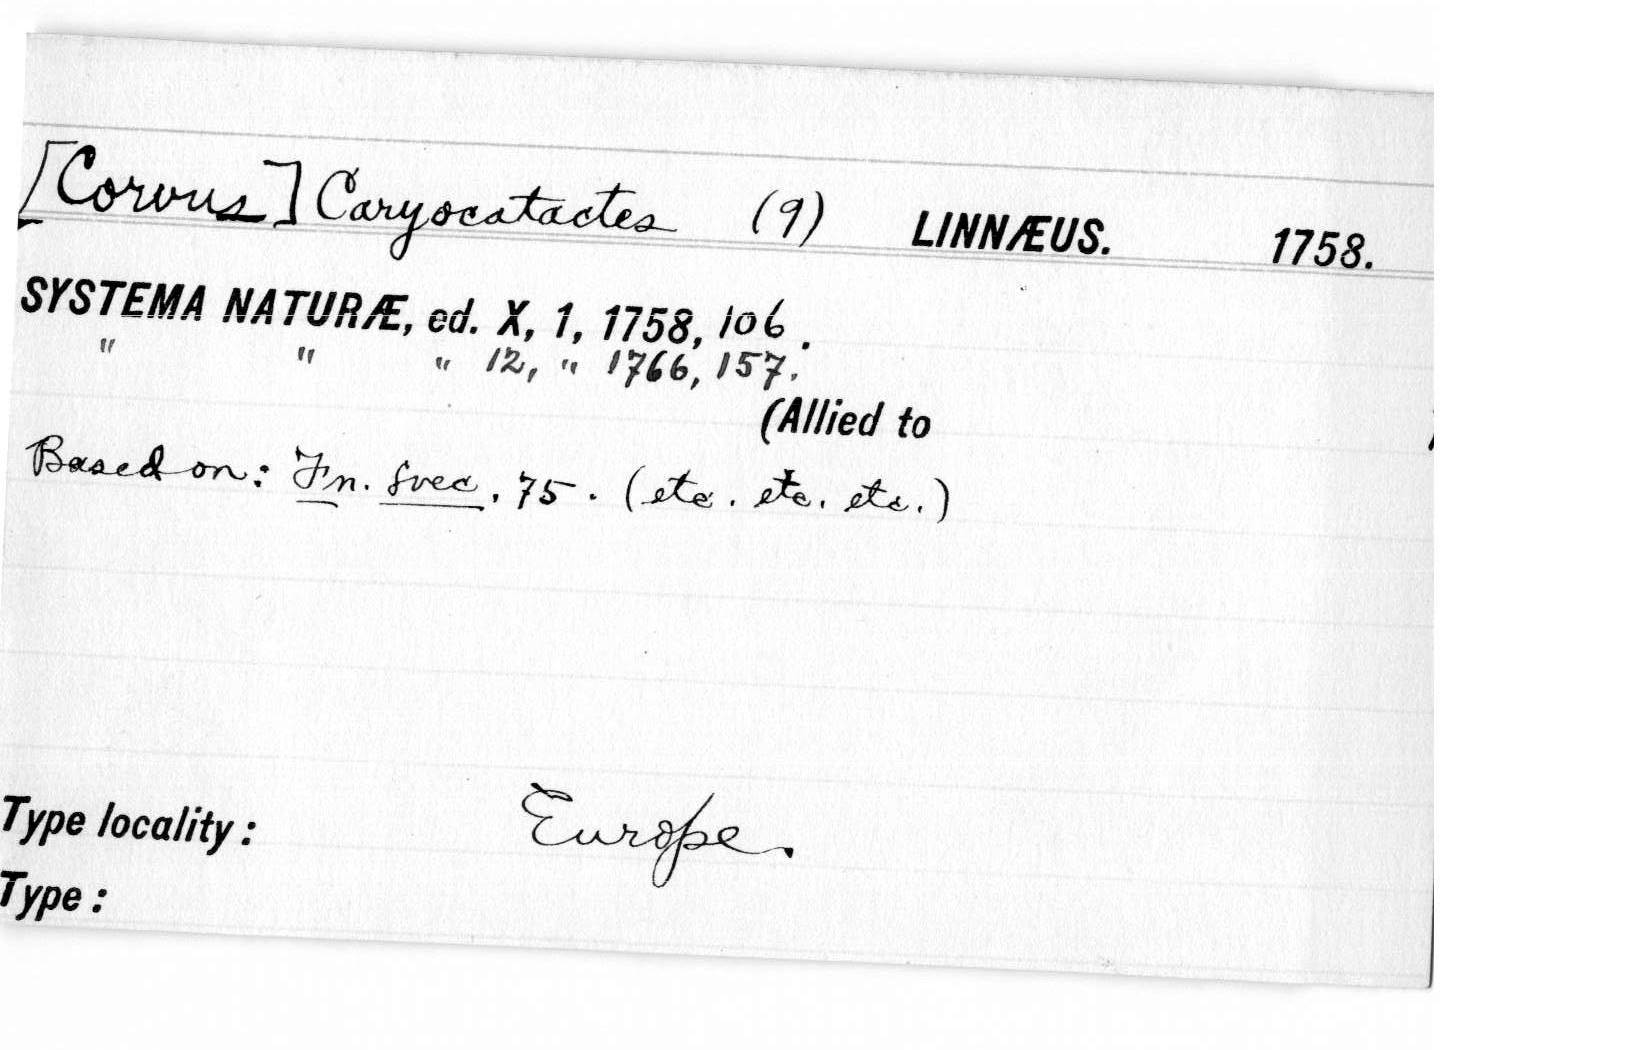 [Corvus] Caryocatactes (9) LINNÆUS. 1758.
SYSTEMA NATURÆ, ed. X, 1, 1758, 106.
" " " 12, " 1766, 157.
(Allied to )
Based on: Fn. Svec. 75. (etc. etc. etc.)
Type locality: Europe.
Type: